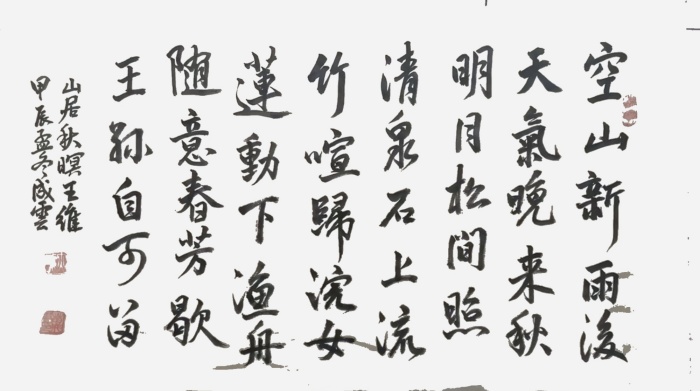 空山新雨後
天氣晚来秋
明月松間照
清泉石上流
竹喧歸浣女
蓮動下漁舟
随意春芳歇
王孫自可留
山居秋暝王維
甲辰孟冬成雲